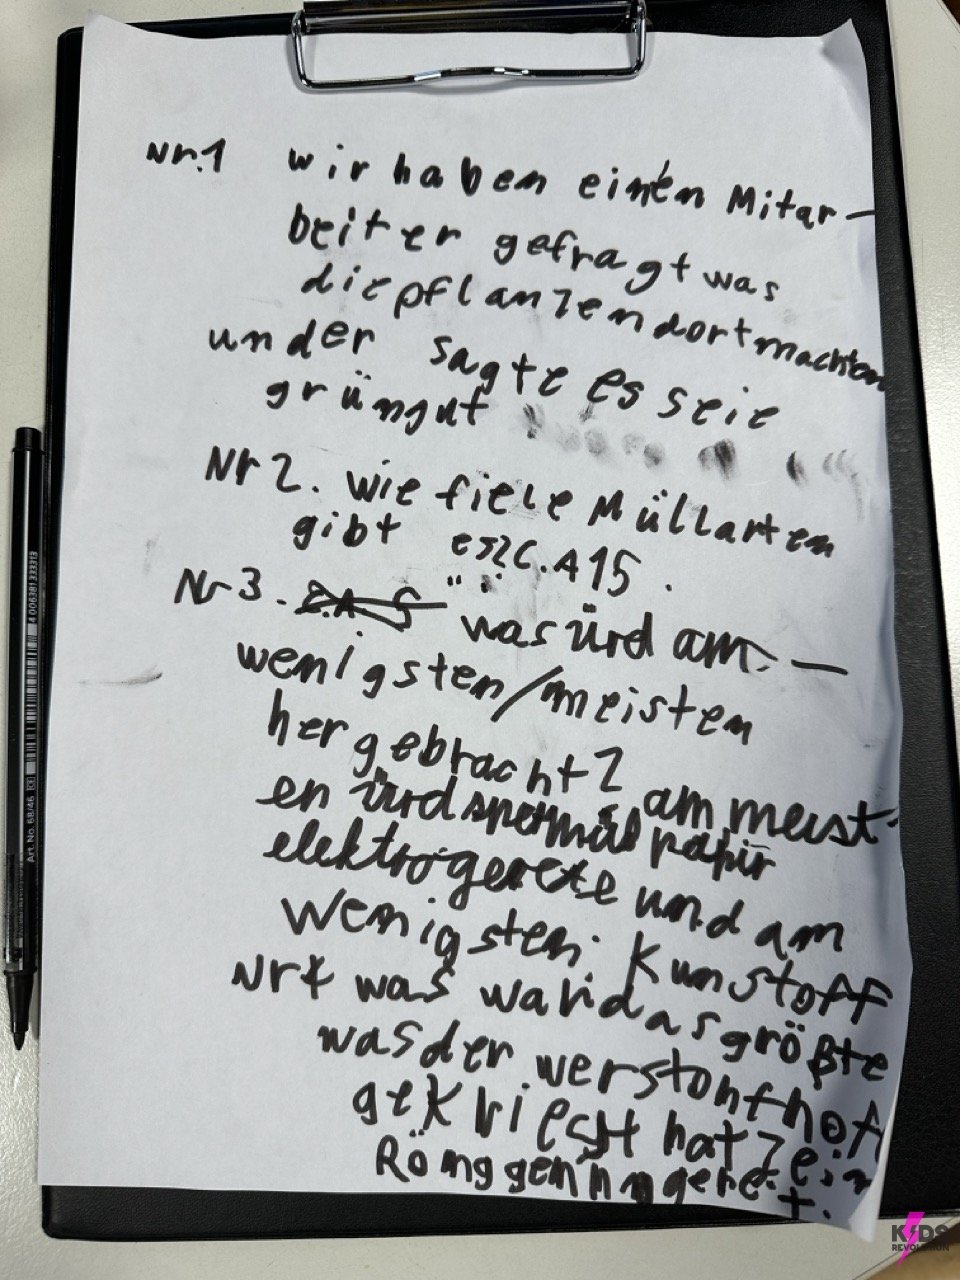 Nr.1 wir haben einen Mitar-
beiter gefragt was
die pflanzen dort machten
und er sagte es seie
grüngut
Nr 2. wie fiele Müllarten
gibt es? C.A 15.
Nr 3. was würd am
wenigsten/meisten
hergebracht? am meist
en würd spermül papir
elektrogerete und am
wenigsten: Kunstoff
Nr 4 was war das größte
was der werstonfhof
gekriegt hat? ein
t.
Art.No. 68/46 CE 4 006381 333313
KIDS
REVOLUTION